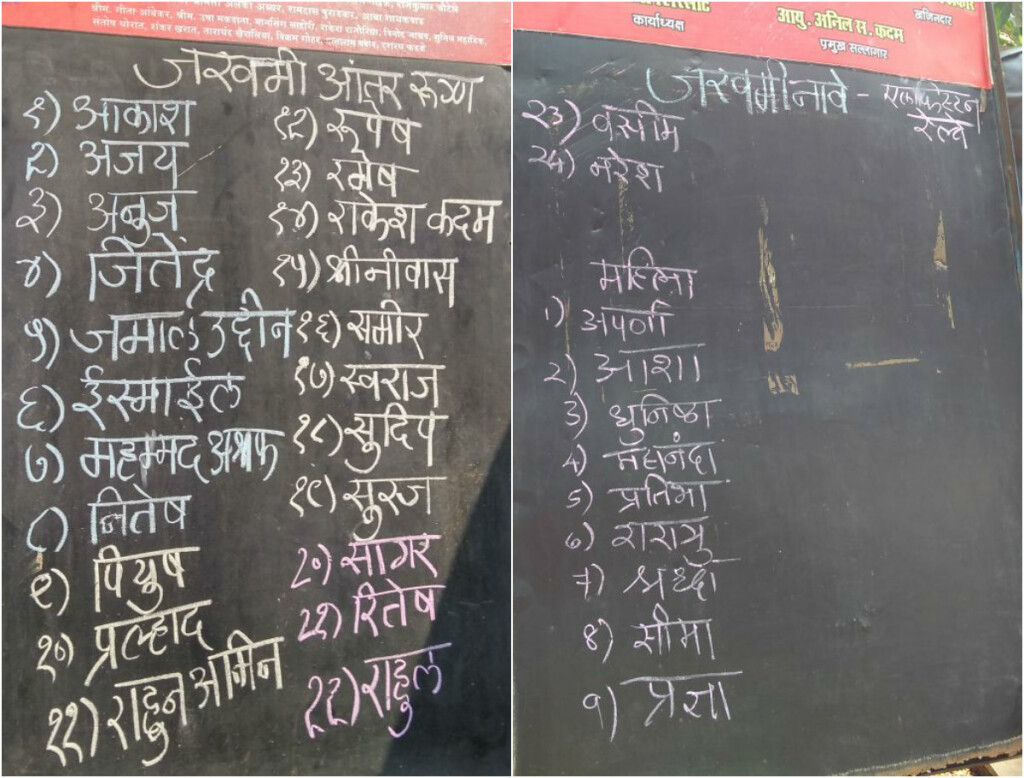 श्रीम. गीता आंबेकर, श्रीम. उषा मकवाना, मानसिंग
संतोष थोरात, शंकर खरात, ताराचंद
जखमी आंतर रूग्ण
१) आकाश
२) अजय
३) अनुज
४) जितेंद्र
५) जमाल उद्दीन
६) ईस्माईल
७) महम्मद अश्रफ
८) नितेष
९) पियुष
१०) प्रल्हाद
११) राहुन अमिन
१२) रूपेष
१३) रमेष
१४) राकेश कदम
१५) श्रीनीवास
१६) समीर
१७) स्वराज
१८) सुदिप
१९) सुरज
२०) सागर
२१) रितेष
२२) राहुल
कार्याध्यक्ष
आयु. अनिल स. कदम
प्रमुख सल्लागार
खजिनदार
जखमी नावे - एलफिस्टन
रेल्वे
२३) वसीम
२४) नरेश
महिला
१) अपर्णा
२) आशा
३) धुनिष्ठा
४) महानंदा
५) प्रतिभा
६)
७) श्रध्दा
८) सीमा
९) प्रज्ञा